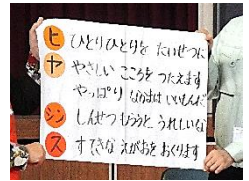 ヒ ひとりひとりを たいせつに
ヤ やさしい こころを つたえます
やっぱり なかまは いいもんだ
シン しんせつ もらうと うれしいな
ス すてきな えがおを おくります